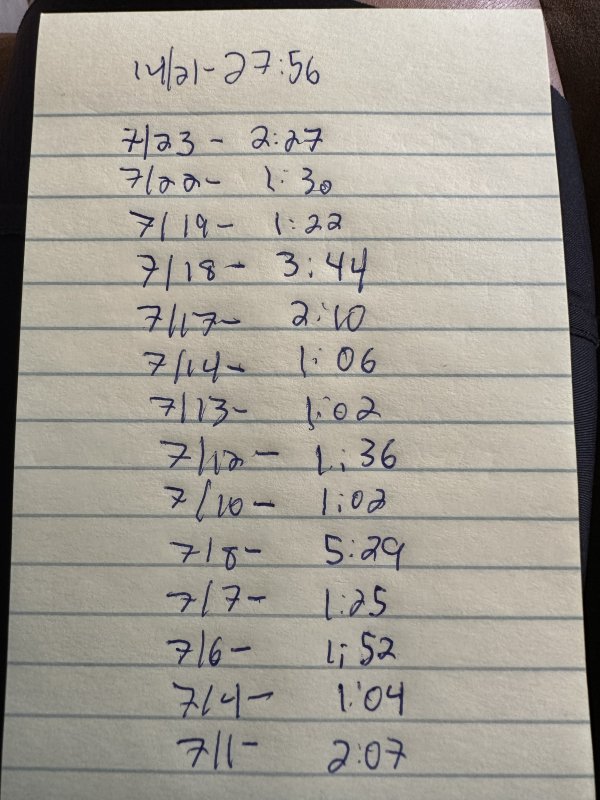 14/21- 27:56
7/23 - 2:27
7/22- 1:30
7/19- 1:22
7/18- 3:44
7/17- 2:10
7/14- 1:06
7/13- 1:02
7/12- 1:36
7/10- 1:02
7/8- 5:29
7/7- 1:25
7/6- 1:52
7/4- 1:04
7/1- 2:07